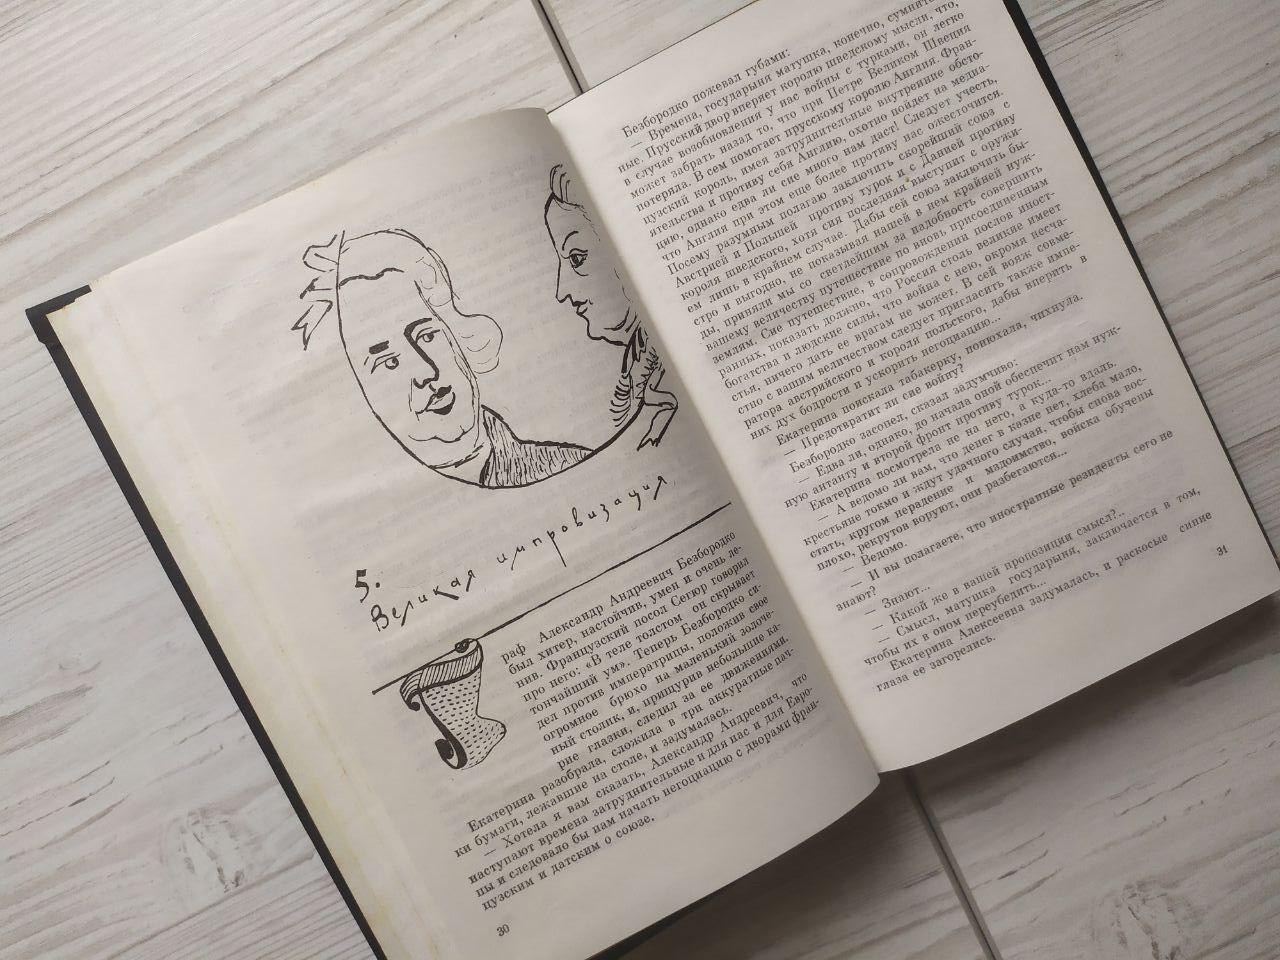 5.
Великая импровизация
раф Александр Андреевич Безбородко
был хитер, настойчив, умен и очень ле-
нив. Французский посол Сегюр говорил
про него: «В теле толстом он скрывает
тончайший ум». Теперь Безбородко си-
дел против императрицы, положив свое
огромное брюхо на маленький золоче-
ный столик, и, прищурив небольшие ка-
рие глазки, следил за ее движениями.
Екатерина разобрала, сложила в три аккуратные пач-
ки бумаги, лежавшие на столе, и задумалась.
— Хотела я вам сказать, Александр Андреевич, что
наступают времена затруднительные и для нас и для Евро-
пы и следовало бы нам начать негоциацию с дворами фран-
цузским и датским о союзе.
30
Безбородко пожевал губами:
— Времена, государыня матушка, конечно, сумнитель-
ные. Прусский двор вперяет королю шведскому мысли, что,
в случае возобновления у нас войны с турками, он легко
может забрать назад то, что при Петре Великом Швеция
потеряла. В сем помогает прусскому королю Англия. Фран-
цузский король, имея затруднительные внутренние обсто-
ятельства и противу себя Англию, охотно пойдет на медиа-
цию, однако едва ли сие много нам даст! Следует учесть,
что Англия при этом еще более противу нас ожесточится.
Посему разумным полагаю заключить скорейший союз с
Австрией и Польшей противу турок и с Данией противу
короля шведского, хотя сия последняя выступит с оружи-
ем лишь в крайнем случае. Дабы сей союз заключить бы-
стро и выгодно, не показывая нашей в нем крайней нуж-
ды, приняли мы со светлейшим за надобность совершить
вашему величеству путешествие по вновь присоединенным
землям. Сие путешествие, в сопровождении послов иност-
ранных, показать должно, что Россия столь великие имеет
богатства и людские силы, что война с нею, окромя несча-
стья, ничего дать ее врагам не может. В сей вояж совме-
стно с вашим величеством следует пригласить также импе-
ратора австрийского и короля польского, дабы вперить в
них дух бодрости и ускорить негоциацию...
Екатерина поискала табакерку, понюхала, чихнула.
— Предотвратит ли сие войну?
Безбородко засопел, сказал задумчиво:
— Едва ли, однако, до начала оной обеспечит нам нуж-
ную антанту и второй фронт противу турок...
Екатерина посмотрела не на него, а куда-то вдаль.
— А ведомо ли вам, что денег в казне нет, хлеба мало,
крестьяне токмо и ждут удачного случая, чтобы снова вос-
стать, кругом нерадение и мздоимство, войска обучены
плохо, рекрутов воруют, они разбегаются...
— Ведомо.
— И вы полагаете, что иностранные резиденты сего не
знают?
— Знают...
— Какой же в вашей пропозиции смысл?..
— Смысл, матушка государыня, заключается в том,
чтобы их в оном переубедить...
Екатерина Алексеевна задумалась, и раскосые синие
глаза ее загорелись.
31